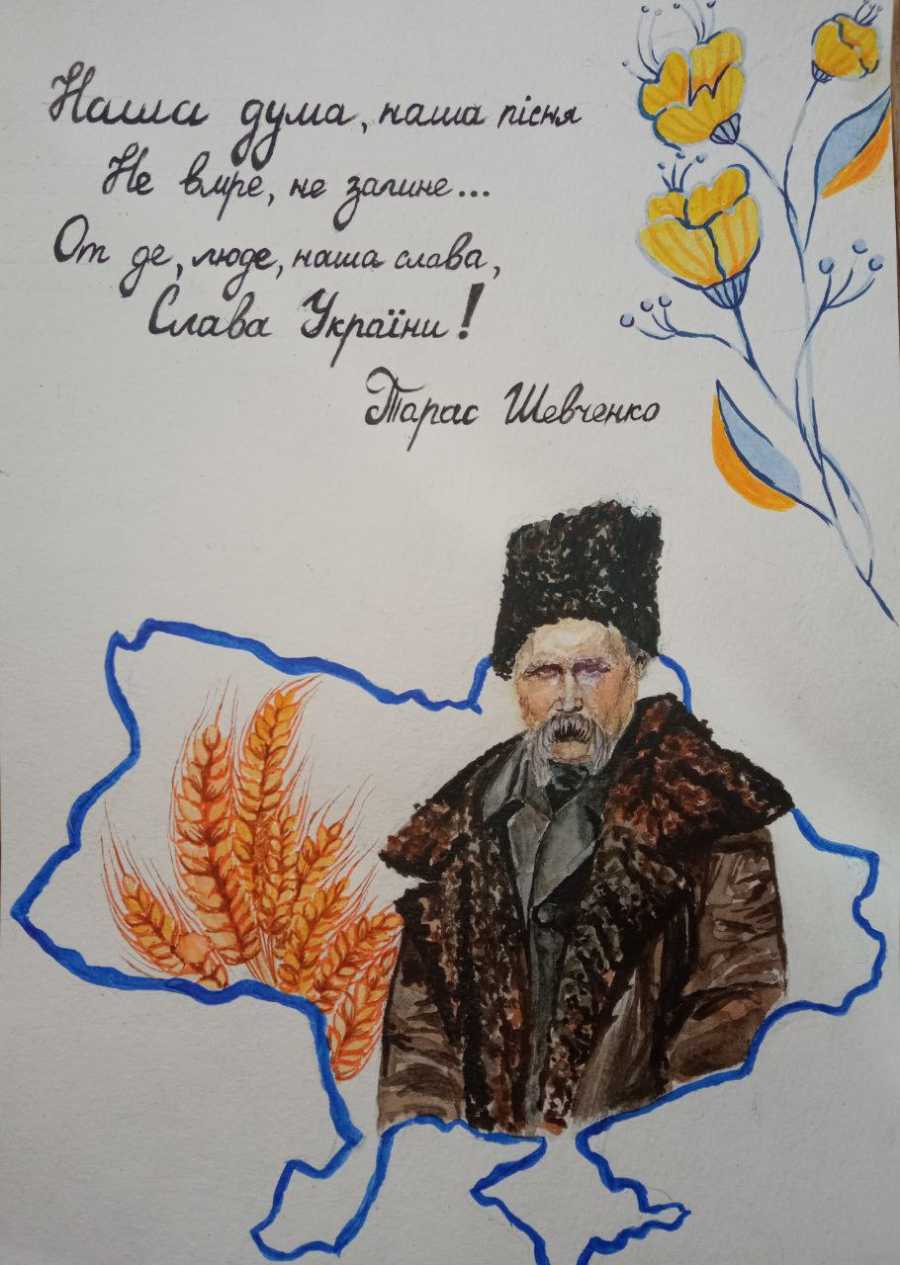 Наша дума, наша пісня
Не вмре, не загине...
От де, люде, наша слава,
Слава України!
Тарас Шевченко